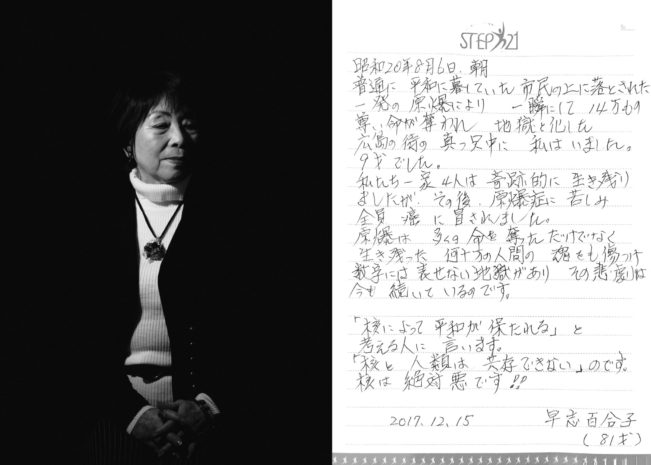 STEP 21
昭和20年8月6日、朝
普通に 平和に暮していた 市民の上に落とされた
一発の 原爆により 一瞬にして 14万もの
尊い命が奪われ 地獄と化した
広島の街の 真っ只中に 私はいました。
9才でした。
私たち一家4人は 奇跡的に 生き残り
ましたが、その後、原爆症に 苦しみ
全員 癌に 冒されました。
原爆は 多くの命を 奪っただけでなく
生き残った 何十万の人間の 魂をも傷つけ
数字には 表せない地獄があり その悲劇は
今も 続いているのです。
「核によって 平和が 保たれる」と
考える人に 言います。
「核と 人類は 共存できない」のです。
核は 絶対悪です!!
2017.12.15 早志百合子
(81才)